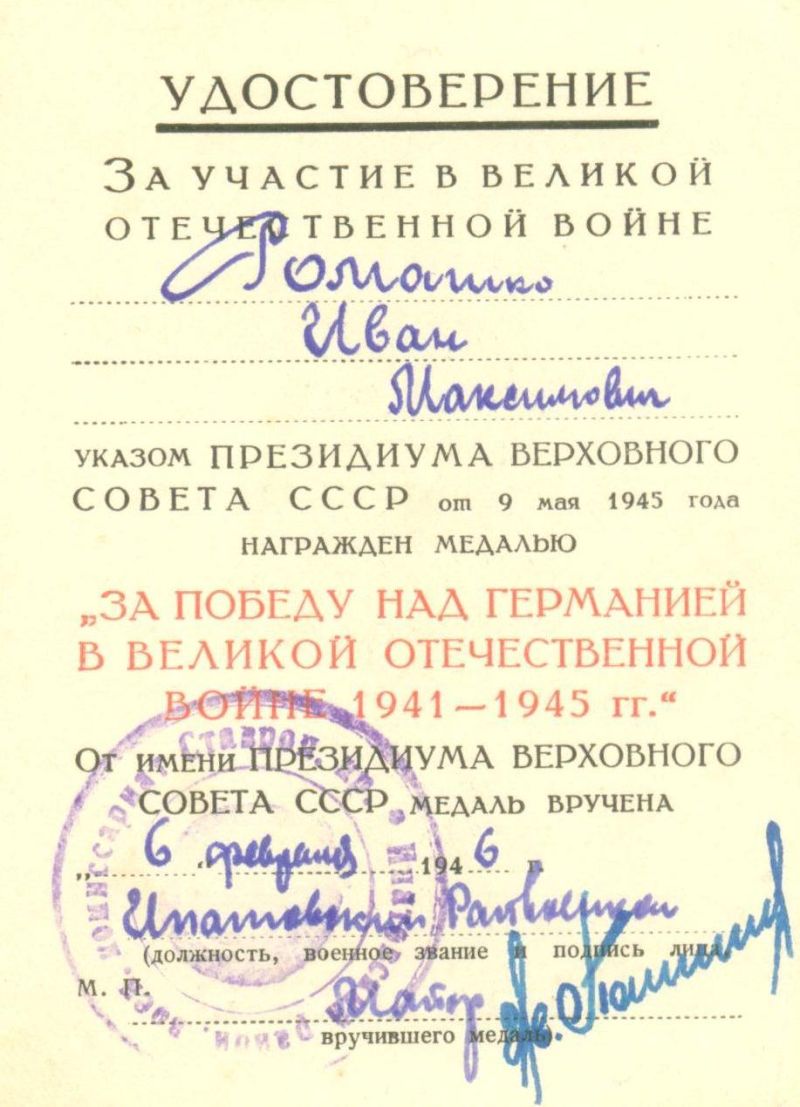 УДОСТОВЕРЕНИЕ
ЗА УЧАСТИЕ В ВЕЛИКОЙ
ОТЕЧЕСТВЕННОЙ ВОЙНЕ
Ромашко
Иван
Максимович
УКАЗОМ ПРЕЗИДИУМА ВЕРХОВНОГО
СОВЕТА СССР от 9 мая 1945 года
НАГРАЖДЕН МЕДАЛЬЮ
„ЗА ПОБЕДУ НАД ГЕРМАНИЕЙ
В ВЕЛИКОЙ ОТЕЧЕСТВЕННОЙ
ВОЙНЕ 1941—1945 гг.“
ОТ ИМЕНИ ПРЕЗИДИУМА ВЕРХОВНОГО
СОВЕТА СССР МЕДАЛЬ ВРУЧЕНА
„6“ февраля 1946 г.
Ипатовский Райвоенком
(должность, военное звание и подпись лица,
М. П.
Майор
вручившего медаль)